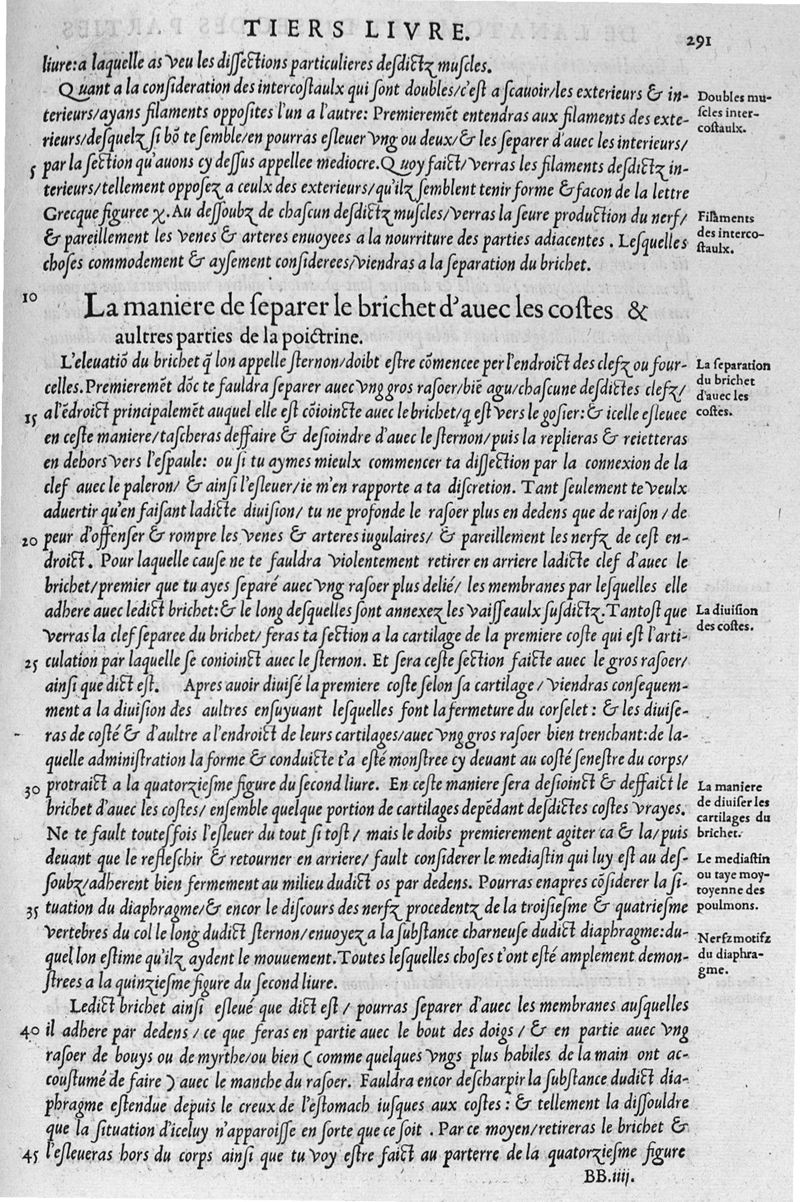 TIERS LIVRE.
291
liure: a laquelle as veu les dissections particulieres desdictz muscles.
Quant a la consideration des intercostaulx qui sont doubles/c'est a scauoir/les exterieurs & in-
terieurs/ayans filaments opposites l'un a l'autre: Premieremēt entendras aux filaments des exte-
rieurs/desquelz si bō te semble/en pourras esleuer vng ou deux/& les separer d'auec les interieurs/
5 par la section qu'auons cy dessus appellee mediocre. Quoy faict/verras les filaments desdictz in-
terieurs/tellement opposez a ceulx des exterieurs/qu'ilz semblent tenir forme & facon de la lettre
Grecque figuree χ. Au dessoubz de chascun desdictz muscles/verras la seure production du nerf/
& pareillement les venes & arteres enuoyees a la nourriture des parties adiacentes. Lesquelles
choses commodement & aysement considerees/viendras a la separation du brichet.
Doubles mu-
scles inter-
costaulx.
Filāments
des interco-
staulx.
10 La maniere de separer le brichet d'auec les costes &
aultres parties de la poictrine.
L'eleuatiō du brichet q̄ lon appelle sternon/doibt estre cōmencee per l'endroict des clefz ou four-
celles. Premieremēt dōc te fauldra separer auec vng gros rasoer/biē agu/chascune desdictes clefz/
15 a l'ēdroict principalemēt auquel elle est cōioincte auec le brichet/q̄ est vers le gosier: & icelle esleuee
en ceste maniere/tascheras deffaire & desioindre d'auec le sternon/puis la replieras & reietteras
en dehors vers l'espaule: ou si tu aymes mieulx commencer ta dissection par la connexion de la
clef auec le paleron/ & ainsi l'esleuer/ie m'en rapporte a ta discretion. Tant seulement te veulx
aduertir qu'en faisant ladicte diuision/ tu ne profonde le rasoer plus en dedens que de raison / de
20 peur d'offenser & rompre les venes & arteres iugulaires/ & pareillement les nerfz de cest en-
droict. Pour laquelle cause ne te fauldra violentement retirer en arriere ladicte clef d'auec le
brichet/premier que tu ayes separé auec vng rasoer plus delié/ les membranes par lesquelles elle
adhere auec ledict brichet: & le long desquelles sont annexez les vaisseaulx susdictz. Tantost que
verras la clef separee du brichet/ feras ta section a la cartilage de la premiere coste qui est l'arti-
25 culation par laquelle se conioinct auec le sternon. Et sera ceste section faicte auec le gros rasoer/
ainsi que dict est. Apres auoir diuisé la premiere coste selon sa cartilage / viendras consequem-
ment a la diuision des aultres ensuyuant lesquelles font la fermeture du corselet : & les diuise-
ras de costé & d'aultre a l'endroict de leurs cartilages/auec vng gros rasoer bien trenchant: de la-
quelle administration la forme & conduicte t'a esté monstree cy deuant au costé senestre du corps/
30 protraict a la quatorziesme figure du second liure. En ceste maniere sera desioinct & deffaict le
brichet d'auec les costes/ ensemble quelque portion de cartilages depēdant desdictes costes vrayes.
Ne te fault toutesfois l'esleuer du tout si tost / mais le doibs premierement agiter ca & la/puis
deuant que le refleschir & retourner en arriere/ fault considerer le mediastin qui luy est au des-
soubz/adherent bien fermement au milieu dudict os par dedens. Pourras enapres cōsiderer la si-
35 tuation du diaphragme/& encor le discours des nerfz procedentz de la troisiesme & quatriesme
vertebres du col le long dudict sternon/enuoyez a la substance charneuse dudict diaphragme: du-
quel lon estime qu'ilz aydent le mouuement. Toutes lesquelles choses t'ont esté amplement demon-
strees a la quinziesme figure du second liure.
Ledict brichet ainsi esleué que dict est / pourras separer d'auec les membranes ausquelles
40 il adhere par dedens / ce que feras en partie auec le bout des doigs / & en partie auec vng
rasoer de bouys ou de myrthe/ou bien ( comme quelques vngs plus habiles de la main ont ac-
coustumé de faire ) auec le manche du rasoer. Fauldra encor descharpir la substance dudict dia-
phragme estendue depuis le creux de l'estomach iusques aux costes : & tellement la dissouldre
que la situation d'iceluy n'apparoisse en sorte que ce soit . Par ce moyen/retireras le brichet &
45 l'esleueras hors du corps ainsi que tu voy estre faict au parterre de la quatorziesme figure
La separation
du brichet
d'auec les
costes.
La diuision
des costes.
La maniere
de diuiser les
cartilages du
brichet.
Le mediastin
ou taye moy-
toyenne des
poulmons.
Nerfz motifz
du diaphra-
gme.
BB.iiij.